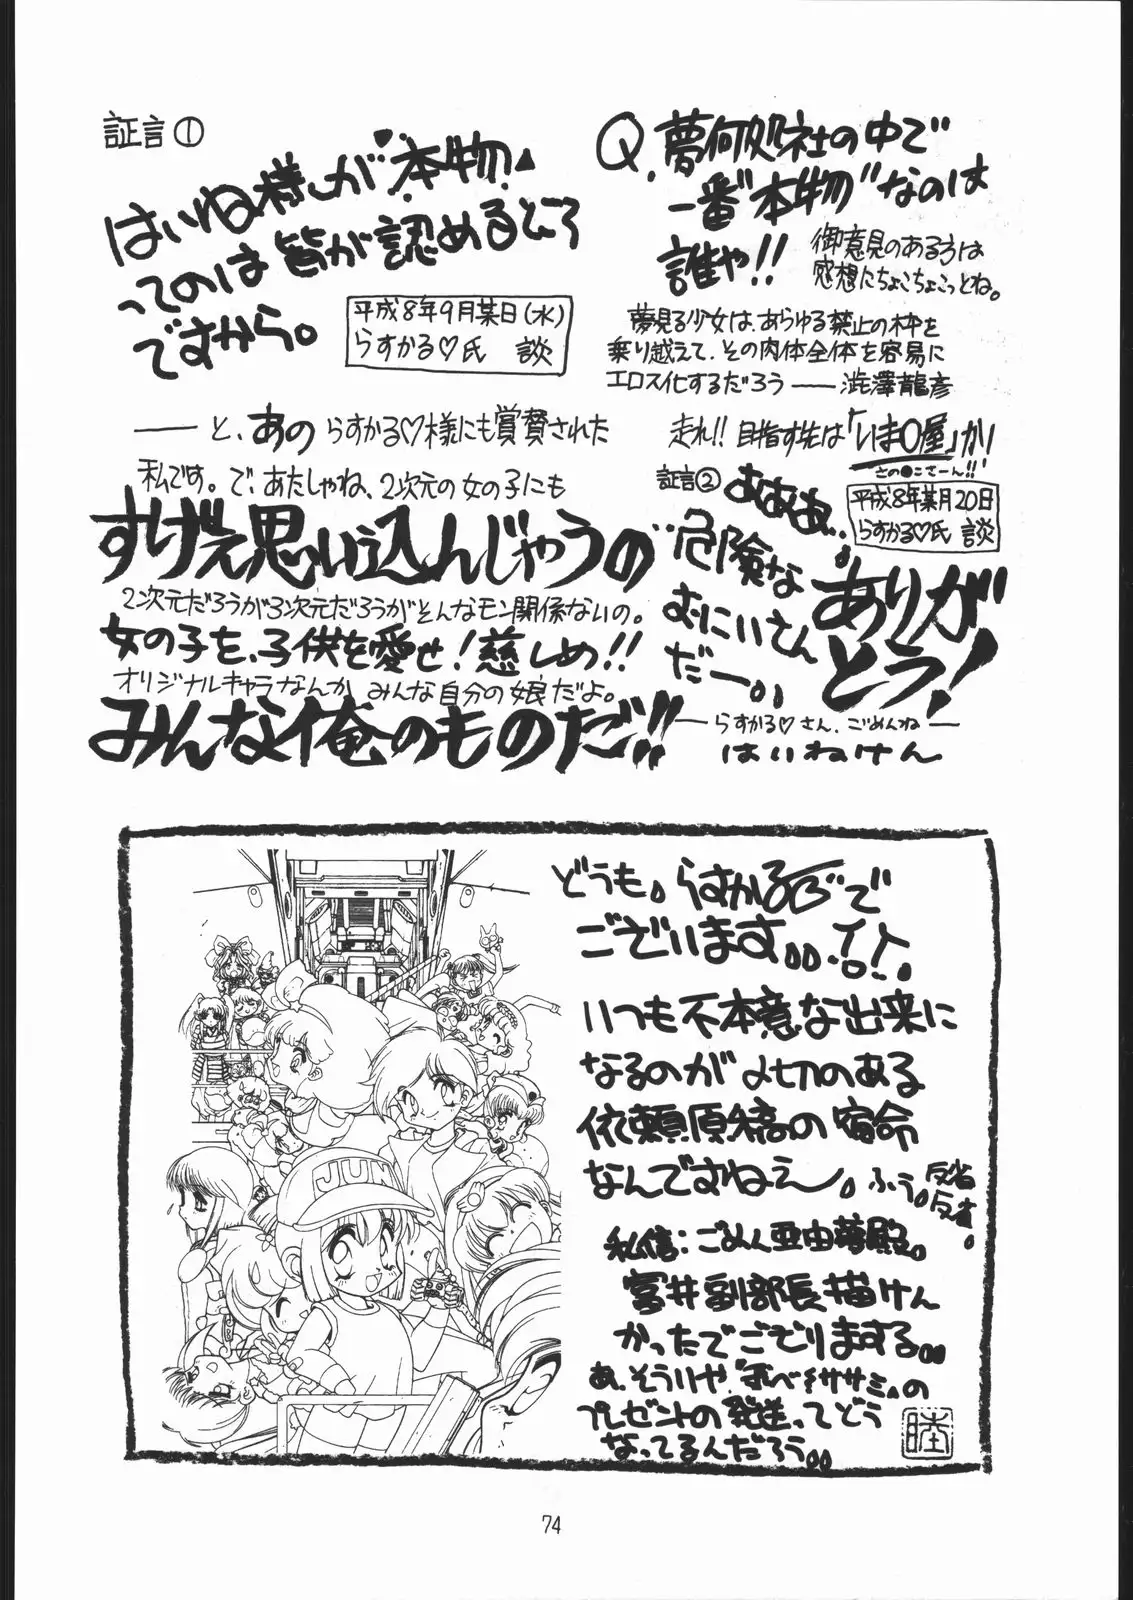 証言①
はいね様が"本物"
ってのは皆が認めるところ
ですから。
平成8年9月某日(水)
らすかる♡氏 談
Q.夢何処社の中で
一番"本物"なのは
誰や!!
御意見のある方は
感想にちょこちょこっとね。
夢見る少女は、あらゆる禁止の枠を
乗り越えて、その肉体全体を容易に
エロス化するだろう――澁澤龍彦
――と、あのらすかる♡様にも賞賛された
私です。で、あたしゃね、2次元の女の子にも
すげえ思い込んじゃうの
2次元だろうが3次元だろうがそんなモン関係ないの。
女の子を、子供を愛せ!慈しめ!!
オリジナルキャラなんか みんな自分の娘だよ。
みんな俺のものだ!!
走れ!! 目指す先は「いま〇屋」か!
さの●こさーん!!
証言②
平成8年某月20日
らすかる♡氏 談
あああ…
危険な
むにいさん
だー。。
ありが
とう!
―らすかる♡さん、ごめんね―
はいねけん
どうも。らすかるで
ございます。。
いつも不本意な出来に
なるのが〆切のある
依頼原稿の宿命
なんですねえー。ふう。
反省
反省。
私信:ごめん亜由夢殿。
富井副部長描けん
かったでござりまする。。
あ、そういや
プレゼントの発送ってどう
なってるんだろう。。
睦
JUN
74